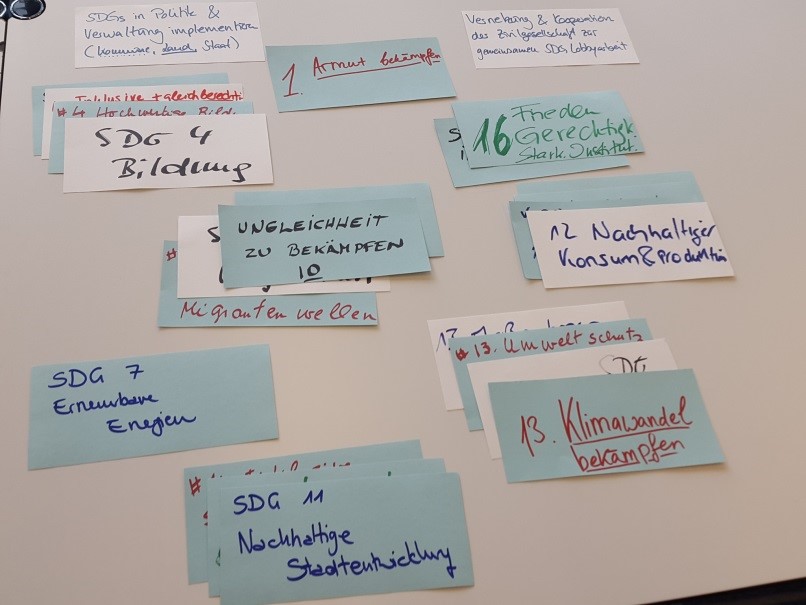 SDGs in Politik &
Verwaltung implementieren
(Kommune, Land, Staat)
Vernetzung & Kooperation
der Zivilgesellschaft zur
gemeinsamen SDG Lobbyarbeit
1. Armut bekämpfen
Inklusive + gleichberecht.
#4 Hochwertige Bild.
SDG 4
Bildung
16 Frieden
Gerechtigk.
Stark. Institut.
UNGLEICHHEIT
ZU BEKÄMPFEN
10
#
Migrantenwellen
12 Nachhaltiger
Konsum & Produktion
#13. Umweltschutz
SDG
13. Klimawandel
bekämpfen
SDG 7
Erneuerbare
Energien
#
SDG 11
Nachhaltige
Stadtentwicklung